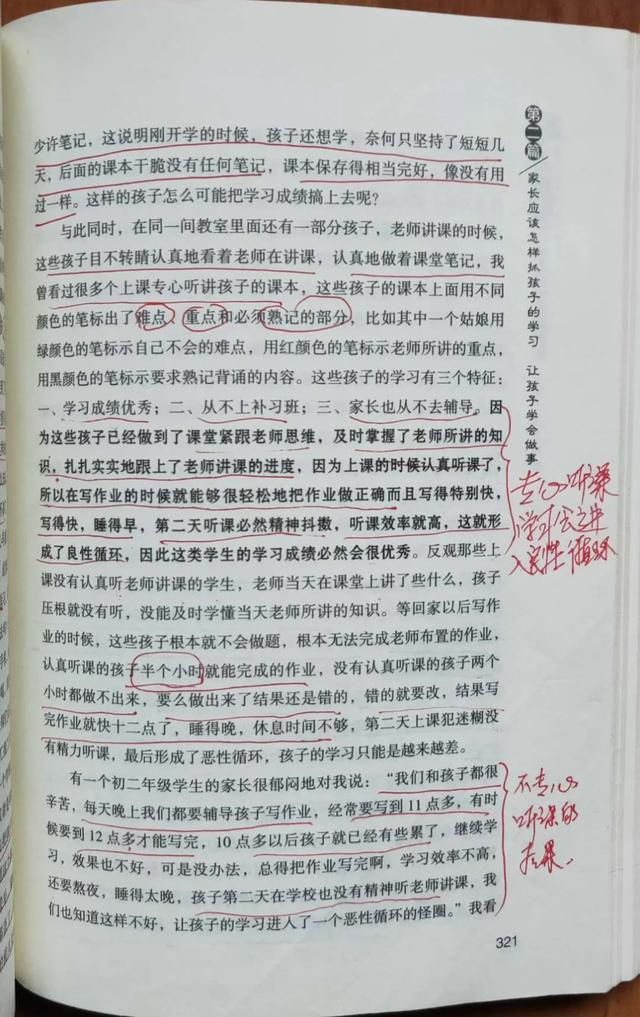 少许笔记，这说明刚开学的时候，孩子还想学，奈何只坚持了短短几
天，后面的课本干脆没有任何笔记，课本保存得相当完好，像没有用
过一样。这样的孩子怎么可能把学习成绩搞上去呢？
与此同时，在同一间教室里面还有一部分孩子，老师讲课的时候，
这些孩子目不转睛认真地看着老师在讲课，认真地做着课堂笔记，我
曾看过很多个上课专心听讲孩子的课本，这些孩子的课本上面用不同
颜色的笔标出了难点、重点和必须熟记的部分，比如其中一个姑娘用
绿颜色的笔标示自己不会的难点，用红颜色的笔标示老师所讲的重点，
用黑颜色的笔标示要求熟记背诵的内容。这些孩子的学习有三个特征：
一、学习成绩优秀；二、从不上补习班；三、家长也从不去辅导。因
为这些孩子已经做到了课堂紧跟老师思维，及时掌握了老师所讲的知
识，扎扎实实地跟上了老师讲课的进度，因为上课的时候认真听课了，
所以在写作业的时候就能够很轻松地把作业做正确而且写得特别快，
写得快，睡得早，第二天听课必然精神抖擞，听课效率就高，这就形
成了良性循环，因此这类学生的学习成绩必然会很优秀。反观那些上
课没有认真听老师讲课的学生，老师当天在课堂上讲了些什么，孩子
压根就没有听，没能及时学懂当天老师所讲的知识。等回家以后写作
业的时候，这些孩子根本就不会做题，根本无法完成老师布置的作业，
认真听课的孩子半个小时就能完成的作业，没有认真听课的孩子两个
小时都做不出来，要么做出来了结果还是错的，错的就要改，结果写
完作业就快十二点了，睡得晚，休息时间不够，第二天上课犯迷糊没
有精力听课，最后形成了恶性循环，孩子的学习只能是越来越差。
有一个初二年级学生的家长很郁闷地对我说：“我们和孩子都很
辛苦，每天晚上我们都要辅导孩子写作业，经常要写到11点多，有时
候要到12点多才能写完，10点多以后孩子就已经有些累了，继续学
习，效果也不好，可是没办法，总得把作业写完啊，学习效率不高，
还要熬夜，睡得太晚，孩子第二天在学校也没有精神听老师讲课，我
们也知道这样不好，让孩子的学习进入了一个恶性循环的怪圈。”我看
321
第二篇
家长应该怎样抓孩子的学习 让孩子学会做事
专心听课
学习会进
入良性循环
不专心
听课的
后果